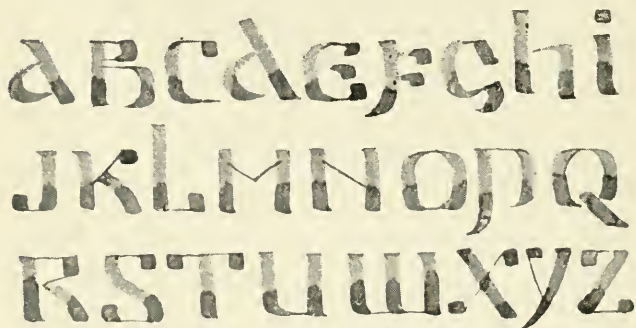 aBCdEFGhi
JKLMNOPQ
RSTUWXyZ